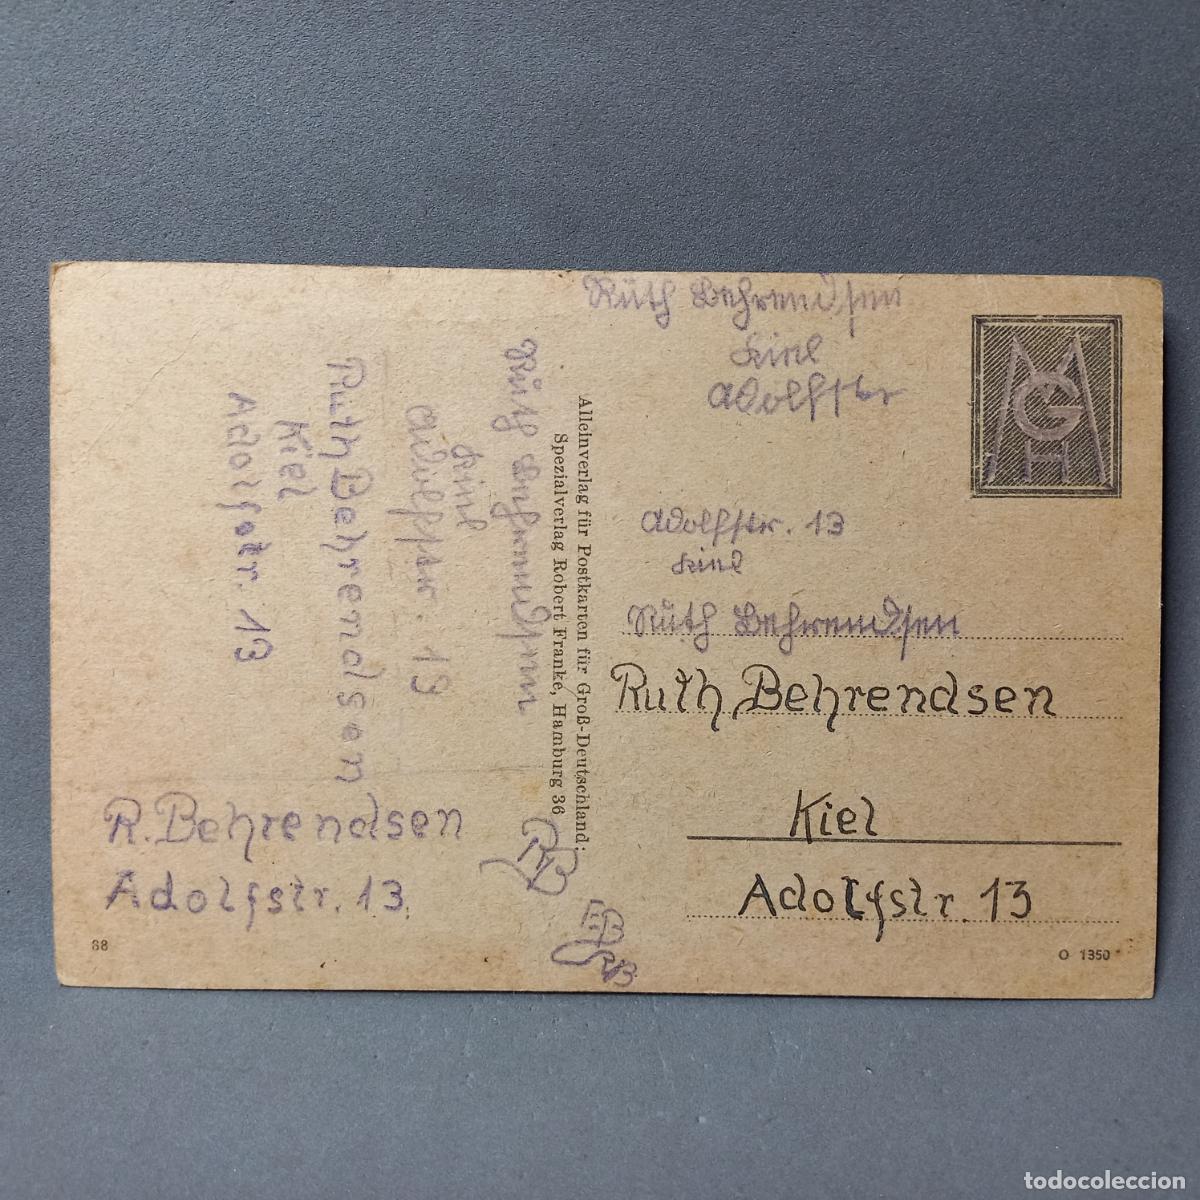 Ruth Behrendsen
Kiel
Adolfstr
Adolfstr. 13
Kiel
Ruth Behrendsen
Ruth Behrendsen
Kiel
Adolfstr. 13
Alleinverlag für Postkarten für Groß-Deutschland:
Spezialverlag Robert Franke, Hamburg 36
Ruth Behrendsen
Kiel
Adolfstr. 13
Ruth Behrendsen
Kiel
Adolfstr. 13
R. Behrendsen
Adolfstr. 13
RB
RB
68
O 1350
todocoleccion